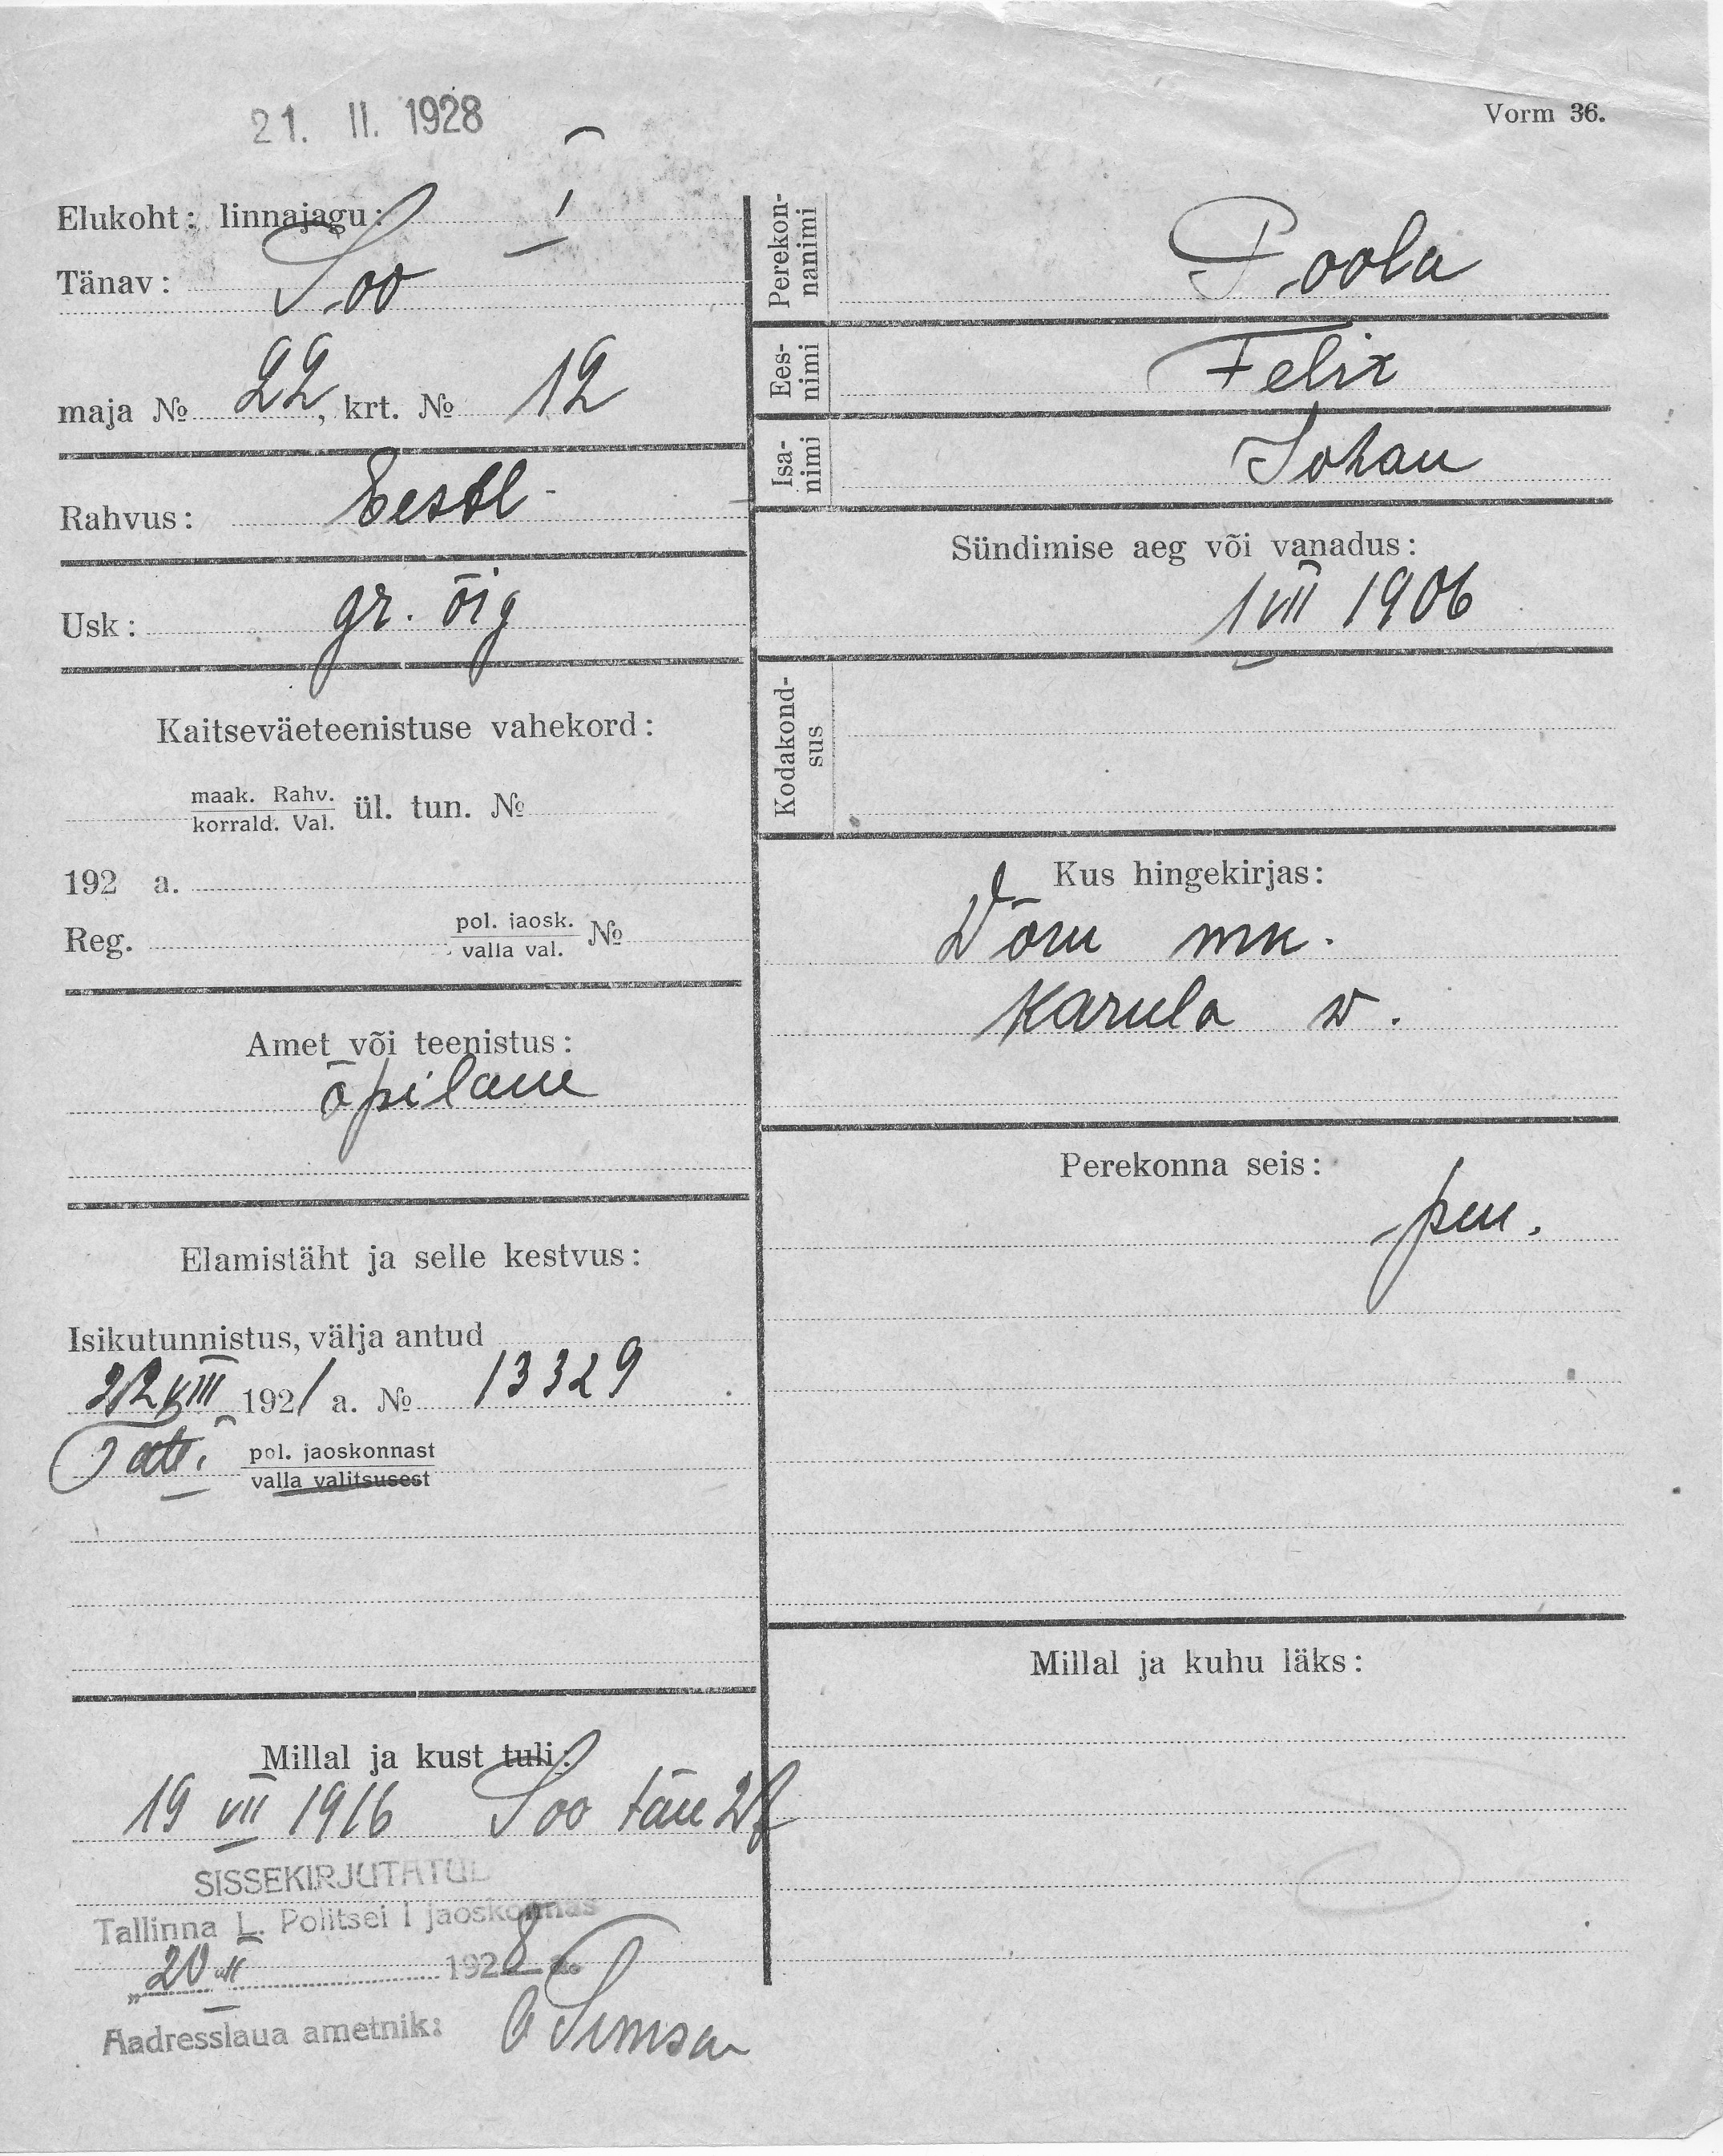 21. II. 1928
Vorm 36.
Elukoht: linnajagu: I
Tänav: Soo
maja № 22, krt. № 12
Rahvus: Eestl.
Usk: gr. õig
Kaitseväeteenistuse vahekord:
maak. Rahv.
korrald. Val.
ül. tun. №
192 a.
Reg. pol. jaosk.
valla val. №
Amet või teenistus:
õpilane
Elamistäht ja selle kestvus:
Isikutunnistus, välja antud
VIII 1921 a. № 13329
pol. jaoskonnast
valla valitsusest
Millal ja kust tuli:
19 VII 1916 Soo tän
SISSEKIRJUTATUD
Tallinna L. Politsei I jaoskonnas
"20 II 1928 a.
Aadresslaua ametnik:
Perekon-
nanimi
Poola
Ees-
nimi
Felix
Isa-
nimi
Johan
Sündimise aeg või vanadus:
1 VII 1906
Kodakond-
sus
Kus hingekirjas:
Võru mk.
Karula v.
Perekonna seis:
Millal ja kuhu läks: